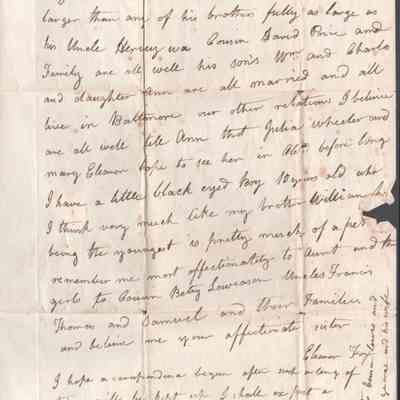 larger than any of his brothers fully as large as
his Uncle Hervey was Cousin David Poe and
Family are all well his sons Wm and Charls
and daughter Ann are all married and all
live in Baltimore our other relations I believe
are all well tell Ann that Julia Wheeler and
mary Eleanor hope to see her in before long
I have a little black eyed boy 10 years old who
I think very much like my brother William he
being the youngest is pretty much of a pet
remember me most affectionately to Aunt and the
girls to Cousin Betsy Uncles Francis
Thomas and Samuel and their Families
and believe me your affectionate sister
Eleanor
I hope a corespondence began after such a long
will be kept up I shall expect a
and
and his wife